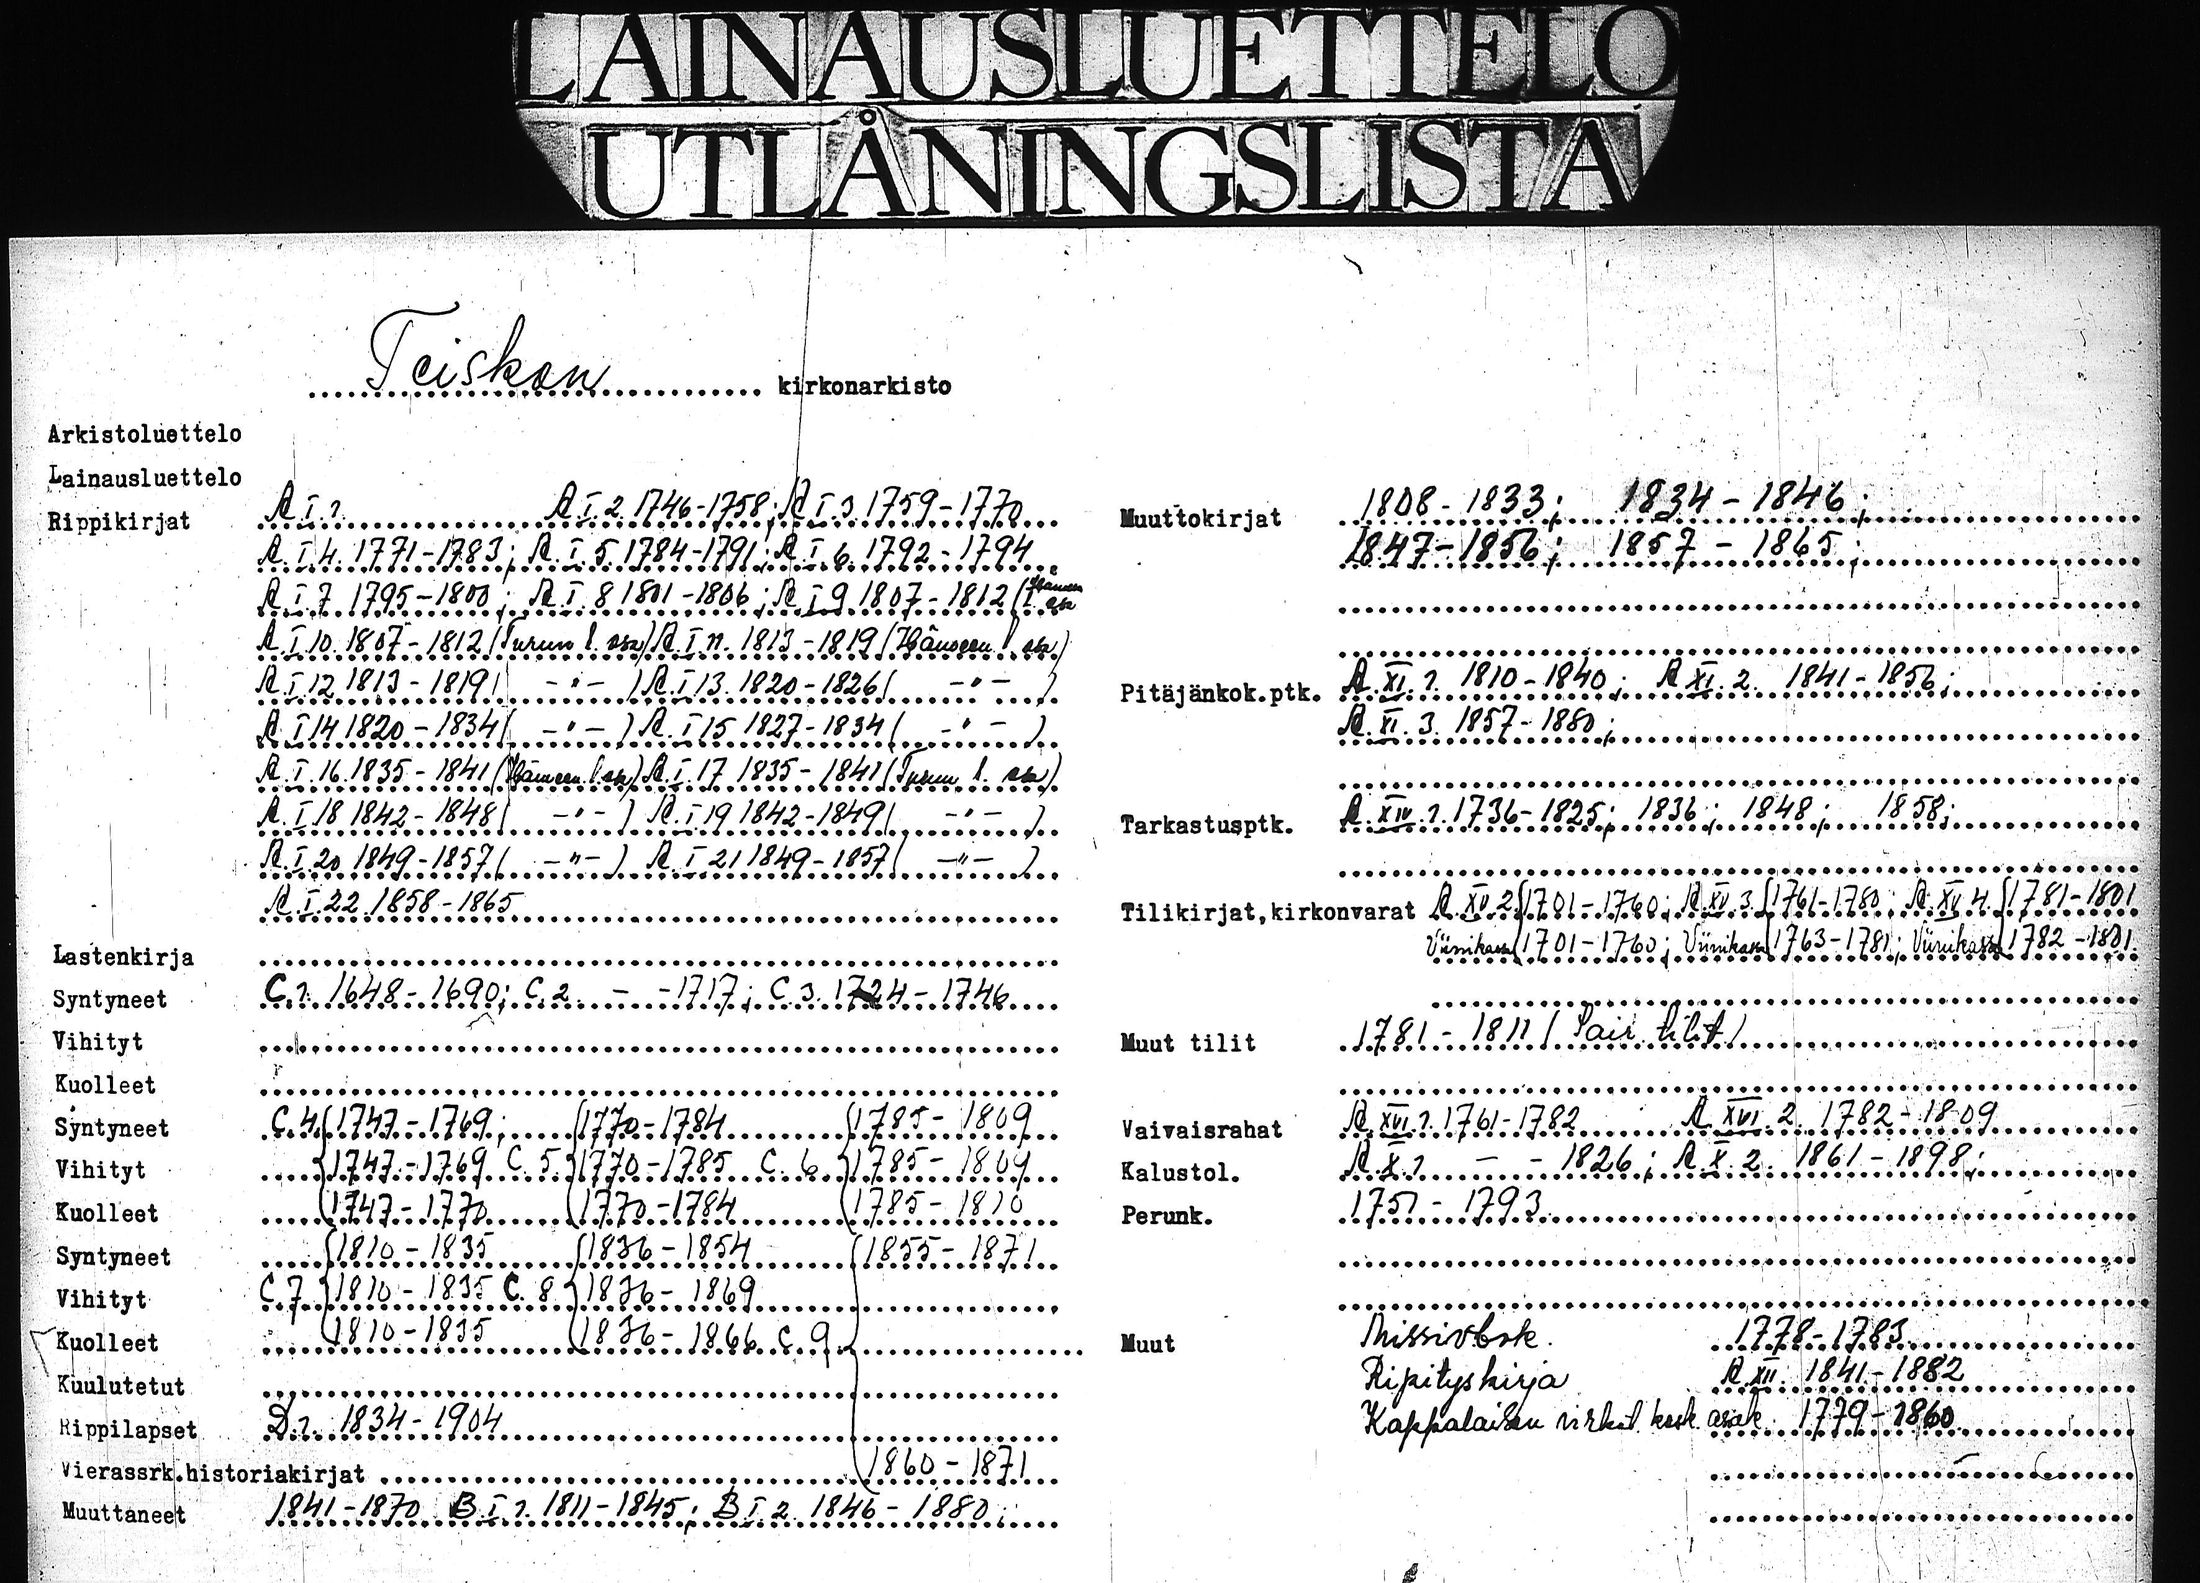 LAINAUSLUETTELO
UTLÅNINGSLISTA
Teiskon kirkonarkisto
Arkistoluettelo
Lainausluettelo
Rippikirjat A I.1. A I.2. 1746-1758; A I.3. 1759-1770
A.I.4. 1771-1783; A.I.5. 1784-1791; A.I.6. 1792-1794
A.I.7 1795-1800; A.I.8 1801-1806; A.I.9 1807-1812 (Hämeen l. osa
A.I.10. 1807-1812 (Turun l. osa) A.I.11. 1813-1819 (Hämeen l. osa)
A.I.12 1813-1819 ( -"- ) A.I.13. 1820-1826 ( -"- )
A.I.14 1820-1834 ( -"- ) A.I.15 1827-1834 ( -"- )
A.I.16. 1835-1841 (Hämeen l. osa) A.I.17 1835-1841 (Turun l. osa)
A.I.18 1842-1848 ( -"- ) A.I.19 1842-1849 ( -"- )
A.I.20 1849-1857 ( -"- ) A.I.21 1849-1857 ( -"- )
A.I.22. 1858-1865
Lastenkirja
Syntyneet C.1. 1648-1690; C.2. - -1717; C.3. 1724-1746
Vihityt
Kuolleet
Syntyneet C.4 (1747-1769; (1770-1784 (1785-1809
Vihityt 1747-1769 C.5. 1770-1785 C.6. 1785-1809
Kuolleet (1747-1770 (1770-1784 (1785-1810
Syntyneet (1810-1835 (1836-1854 (1855-1871
Vihityt C.7 1810-1835 C.8 1836-1869
Kuolleet (1810-1835 (1836-1866 C.9
Kuulutetut
Rippilapset D.1. 1834-1904
Vierassrk.historiakirjat (1860-1871
Muuttaneet 1841-1870 B.I.1. 1811-1845; B.I.2. 1846-1880;
Muuttokirjat 1808-1833; 1834-1846;
1847-1856; 1857-1865;
Pitäjänkok.ptk. A.XI.1. 1810-1840; A.XI.2. 1841-1856;
A.XI.3. 1857-1880;
Tarkastusptk. A.XIV.1. 1736-1825; 1836; 1848; 1858;
Tilikirjat,kirkonvarat A.XV.2. (1701-1760; A.XV.3. (1761-1780; A.XV.4. (1781-1801
Viinikassa (1701-1760; Viinikassa 1763-1781; Viinikassa 1782-1801.
Muut tilit 1781-1811 ( tilit)
Vaivaisrahat A.XVI.1. 1761-1782 A.XVI.2. 1782-1809
Kalustol. A.X.1. - - 1826; A.X.2. 1861-1898;
Perunk. 1751-1793
Muut Missivbok. 1778-1783
Ripityskirja A.XII. 1841-1882
Kappalaisen virkat. kosk. asiak. 1779-1860